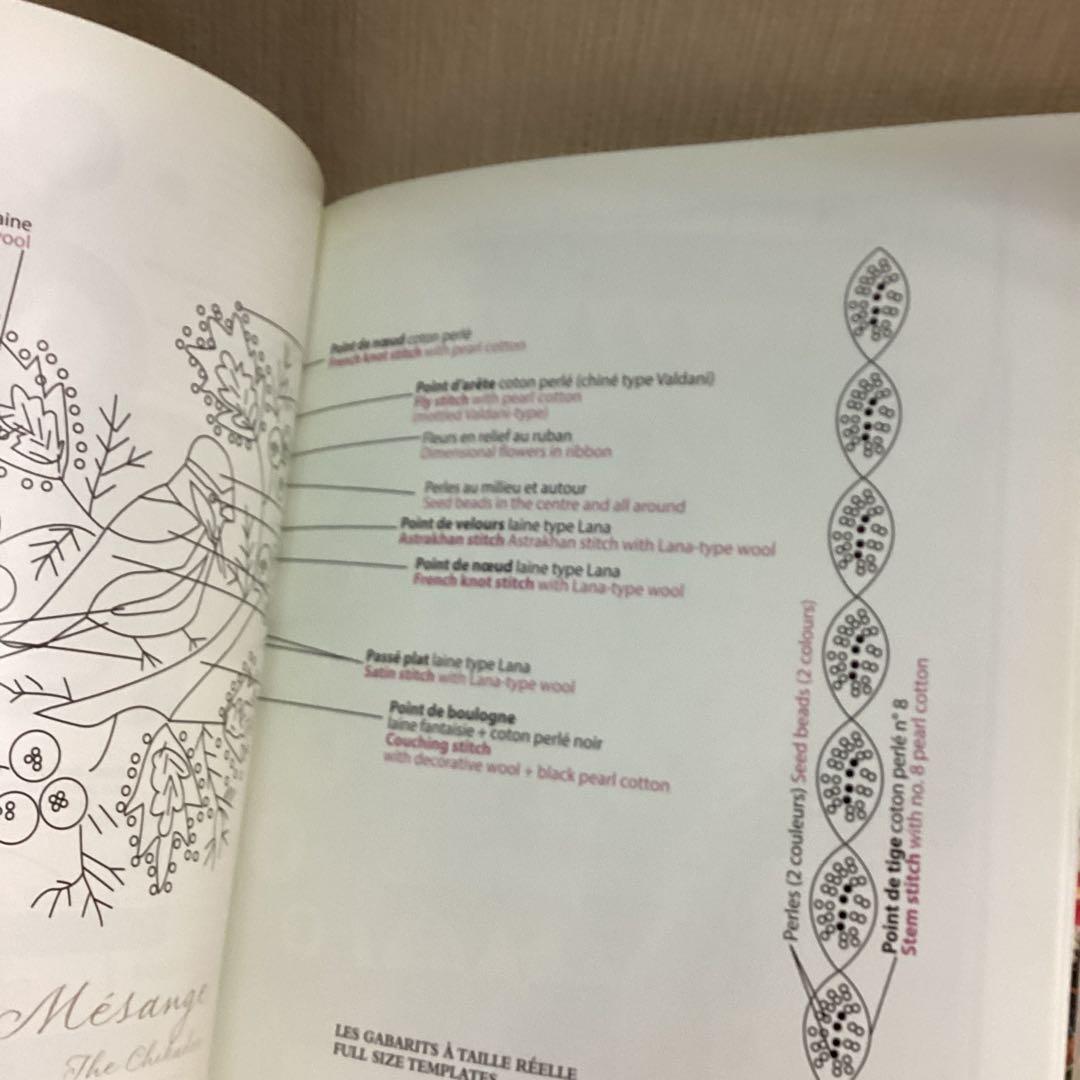 Point de nœud coton perlé
French knot stitch with pearl cotton
Point d'arête coton perlé (chiné type Valdani)
Fly stitch with pearl cotton
(mottled Valdani-type)
Fleurs en relief au ruban
Dimensional flowers in ribbon
Perles au milieu et autour
Seed beads in the centre and all around
Point de velours laine type Lana
Astrakhan stitch Astrakhan stitch with Lana-type wool
Point de nœud laine type Lana
French knot stitch with Lana-type wool
Passé plat laine type Lana
Satin stitch with Lana-type wool
Point de boulogne
laine fantaisie + coton perlé noir
Couching stitch
with decorative wool + black pearl cotton
Perles (2 couleurs) Seed beads (2 colours)
Point de tige coton perlé n° 8
Stem stitch with no. 8 pearl cotton
Mésange
The
LES GABARITS À TAILLE RÉELLE
FULL SIZE TEMPLATES